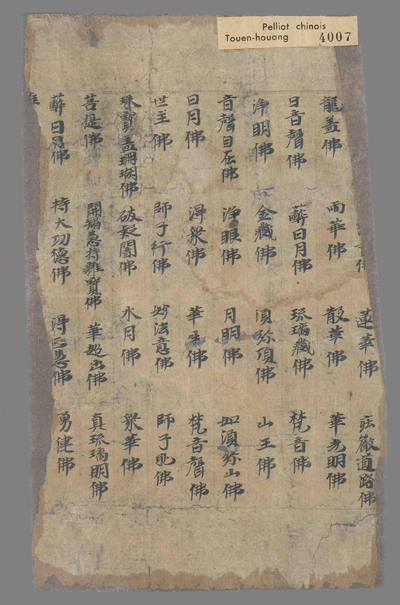 Pelliot chinois
Touen-houang 4007
佛 蓮華佛 徹道路佛
龍蓋佛 雨華佛 散華佛 華光明佛
日音聲佛 蔽日月佛 琉璃藏佛 梵音佛
淨明佛 金藏佛 須弥頂佛 山王佛
音聲自在佛 淨眼佛 月明佛 如須弥山佛
日月佛 得衆佛 華生佛 梵音聲佛
世主佛 師子行佛 妙法意佛 師子吼佛
珠寶蓋珊瑚佛 破癡闇佛 水月佛 衆華佛
菩提佛 開智慧持雜寶佛 華超出佛 真琉璃明佛
蔽日月佛 持大功德佛 得正慧佛 勇健佛